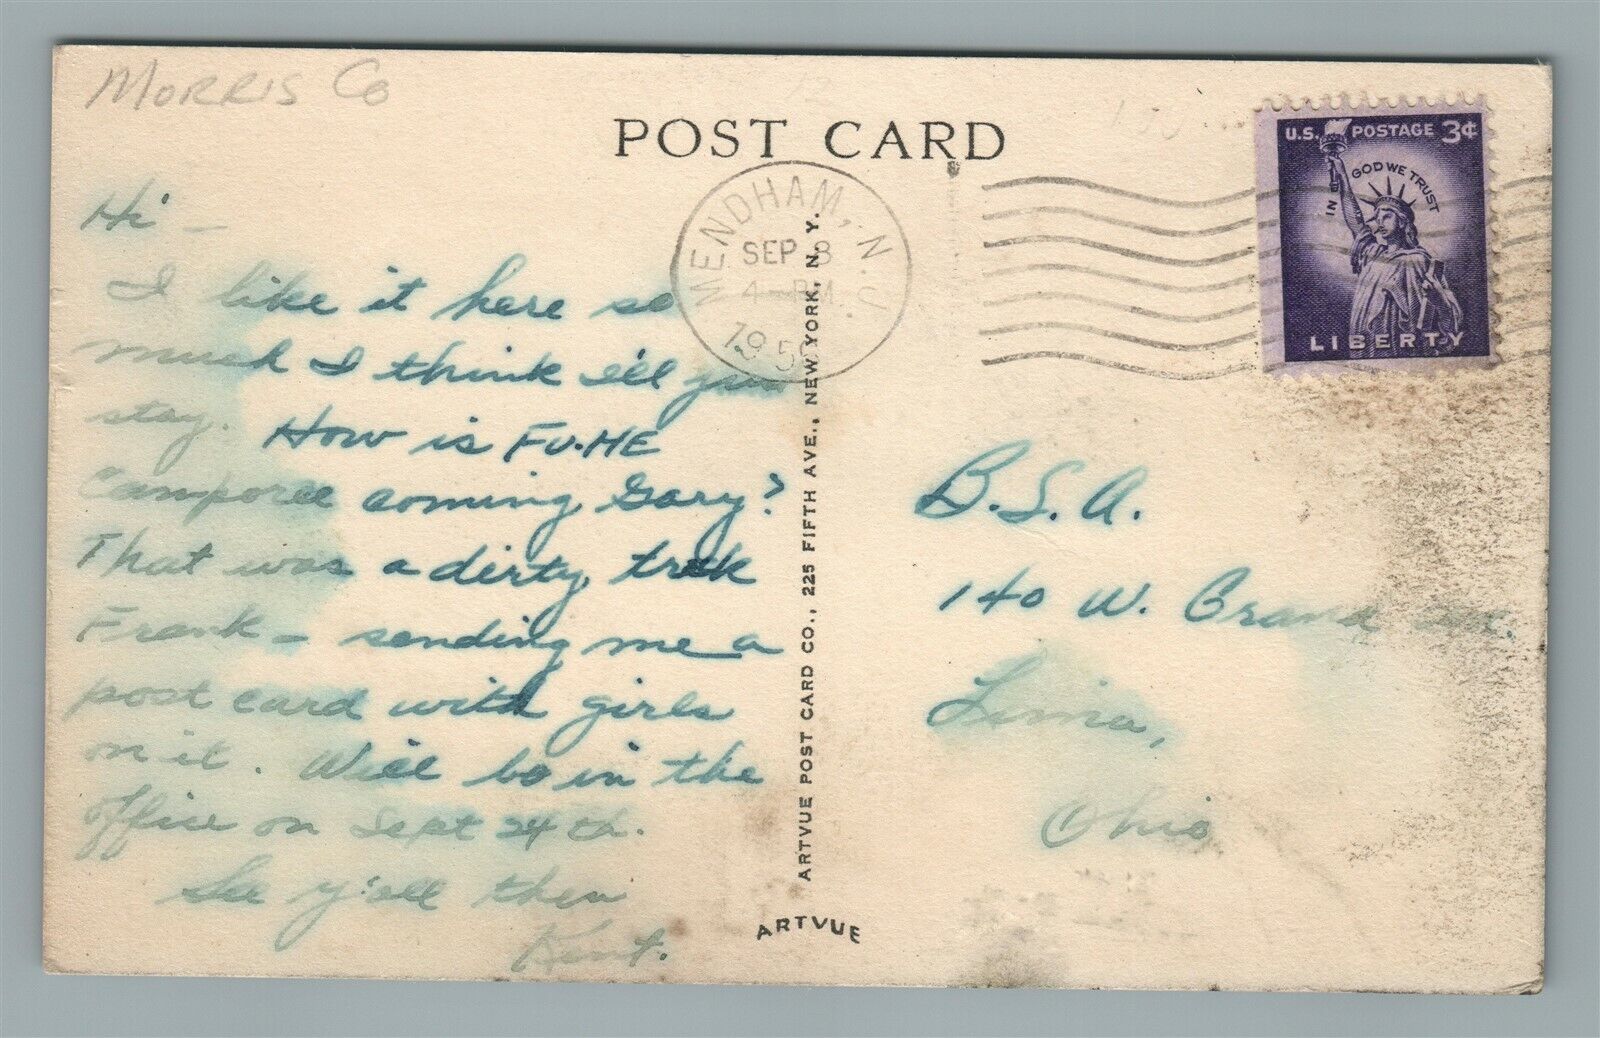 MORRIS Co
POST CARD
MENDHAM, N.J.
SEP 8
4-PM
195
U.S. POSTAGE 3¢
IN GOD WE TRUST
LIBERTY
Hi —
I like it here so
much I think I'll just
stay. How is FU-HE
Camporee coming Gary?
That was a dirty trick
Frank — sending me a
post card with girls
on it. Will be in the
office on Sept 24th.
See y'all then
Kent.
ARTVUE POST CARD CO., 225 FIFTH AVE., NEW YORK, N. Y.
ARTVUE
B.S.A.
140 W. Grand Ave.
Lima,
Ohio